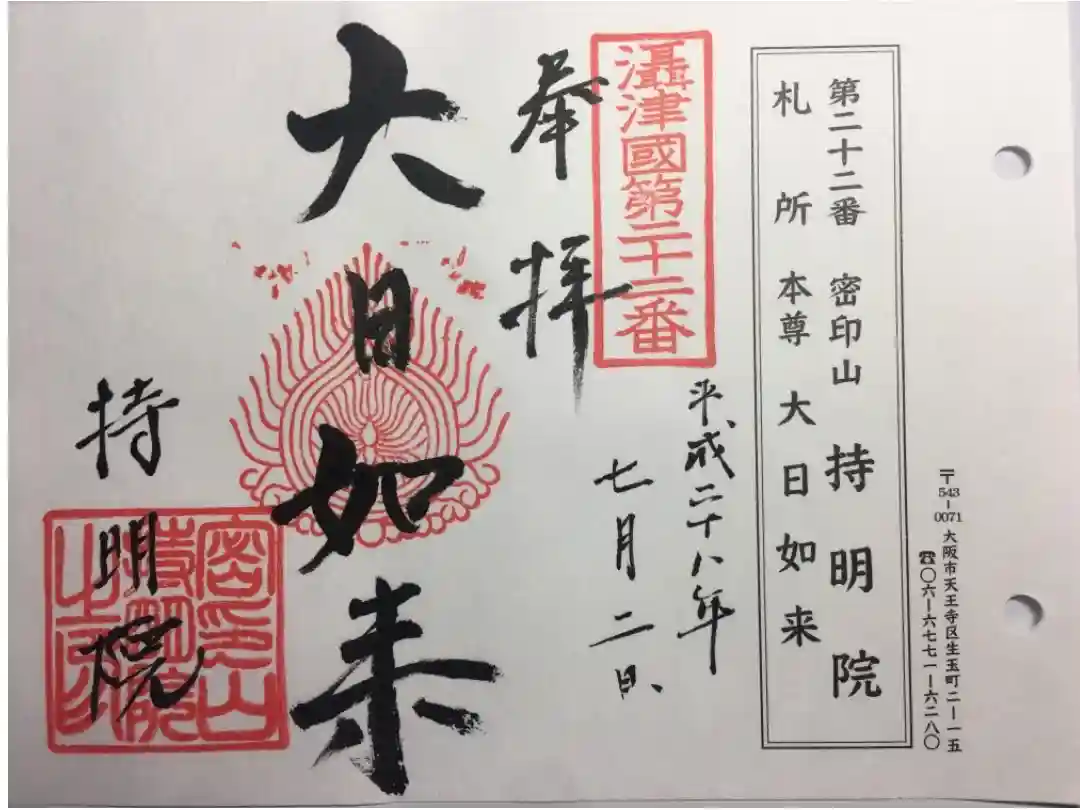 〒543-0071 大阪市天王寺区生玉町二ー一五
☎〇六ー六七七一ー六二八〇
第二十二番 密印山 持明院
札所 本尊 大日如来
攝津國第二十二番
奉拝
平成二十八年
七月二日、
大日如来
持明院
密印山
持明院